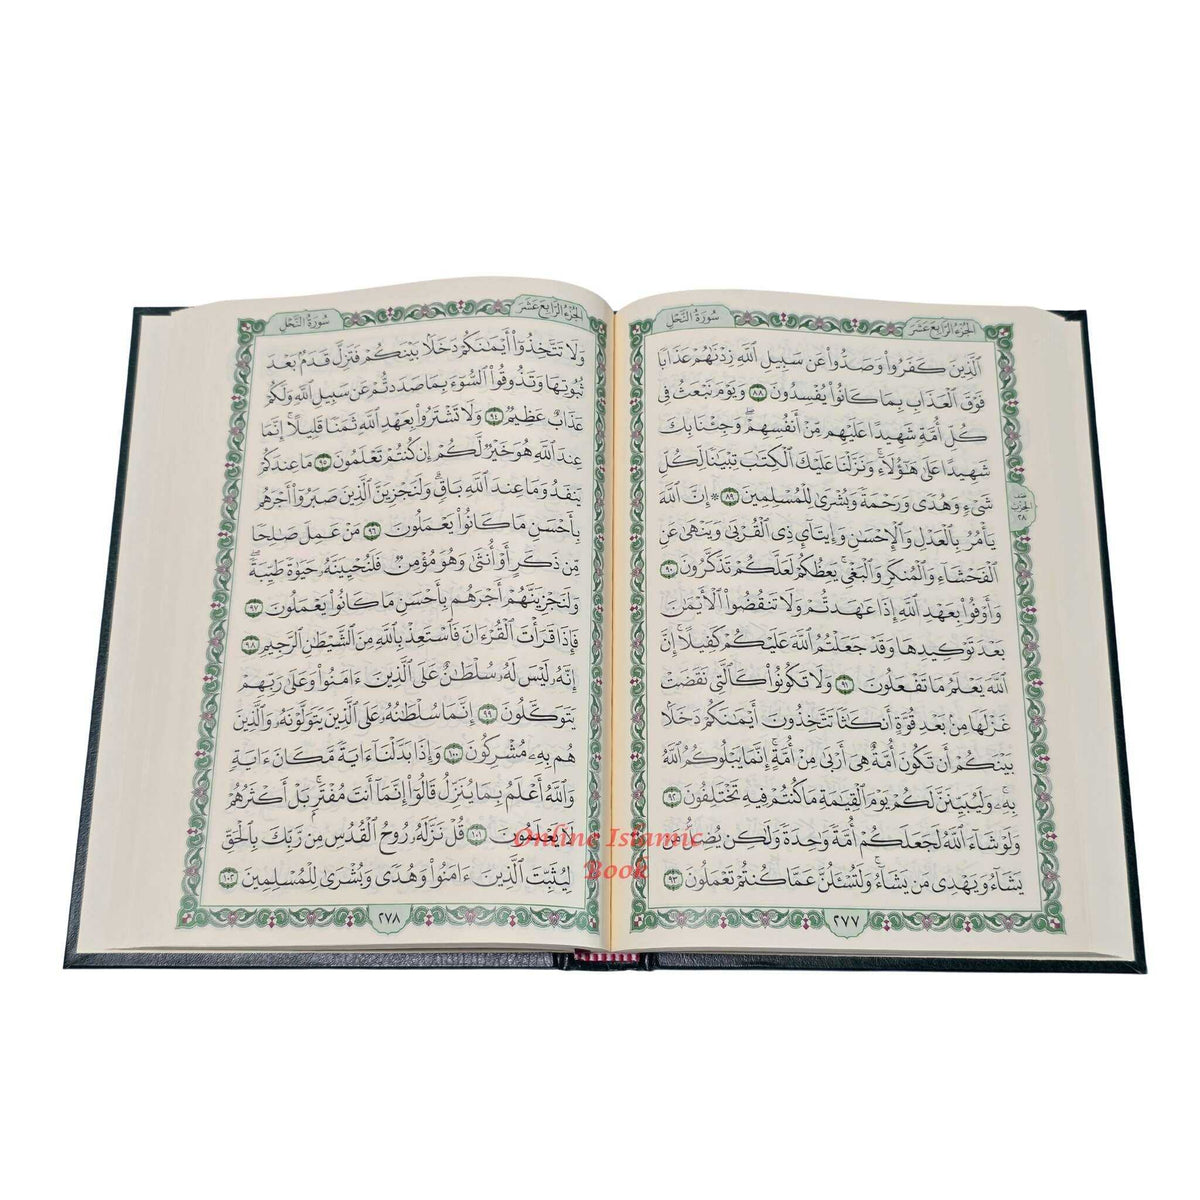 الجُزْءُ الرَّابِعَ عَشَرَ
سُورَةُ النَّحْلِ
ٱلَّذِينَ كَفَرُوا۟ وَصَدُّوا۟ عَن سَبِيلِ ٱللَّهِ زِدْنَـٰهُمْ عَذَابًا
فَوْقَ ٱلْعَذَابِ بِمَا كَانُوا۟ يُفْسِدُونَ ٨٨ وَيَوْمَ نَبْعَثُ فِى
كُلِّ أُمَّةٍ شَهِيدًا عَلَيْهِم مِّنْ أَنفُسِهِمْ ۖ وَجِئْنَا بِكَ
شَهِيدًا عَلَىٰ هَـٰٓؤُلَآءِ ۚ وَنَزَّلْنَا عَلَيْكَ ٱلْكِتَـٰبَ تِبْيَـٰنًا لِّكُلِّ
شَىْءٍ وَهُدًى وَرَحْمَةً وَبُشْرَىٰ لِلْمُسْلِمِينَ ٨٩ ۞ إِنَّ ٱللَّهَ
نصف
الحزب
٢٨
يَأْمُرُ بِٱلْعَدْلِ وَٱلْإِحْسَـٰنِ وَإِيتَآئِ ذِى ٱلْقُرْبَىٰ وَيَنْهَىٰ عَنِ
ٱلْفَحْشَآءِ وَٱلْمُنكَرِ وَٱلْبَغْىِ ۚ يَعِظُكُمْ لَعَلَّكُمْ تَذَكَّرُونَ ٩٠
وَأَوْفُوا۟ بِعَهْدِ ٱللَّهِ إِذَا عَـٰهَدتُّمْ وَلَا تَنقُضُوا۟ ٱلْأَيْمَـٰنَ
بَعْدَ تَوْكِيدِهَا وَقَدْ جَعَلْتُمُ ٱللَّهَ عَلَيْكُمْ كَفِيلًا ۚ إِنَّ
ٱللَّهَ يَعْلَمُ مَا تَفْعَلُونَ ٩١ وَلَا تَكُونُوا۟ كَٱلَّتِى نَقَضَتْ
غَزْلَهَا مِنۢ بَعْدِ قُوَّةٍ أَنكَـٰثًا تَتَّخِذُونَ أَيْمَـٰنَكُمْ دَخَلًۢا
بَيْنَكُمْ أَن تَكُونَ أُمَّةٌ هِىَ أَرْبَىٰ مِنْ أُمَّةٍ ۚ إِنَّمَا يَبْلُوكُمُ ٱللَّهُ
بِهِۦ ۚ وَلَيُبَيِّنَنَّ لَكُمْ يَوْمَ ٱلْقِيَـٰمَةِ مَا كُنتُمْ فِيهِ تَخْتَلِفُونَ ٩٢
وَلَوْ شَآءَ ٱللَّهُ لَجَعَلَكُمْ أُمَّةً وَٰحِدَةً وَلَـٰكِن يُضِلُّ مَن
يَشَآءُ وَيَهْدِى مَن يَشَآءُ ۚ وَلَتُسْـَٔلُنَّ عَمَّا كُنتُمْ تَعْمَلُونَ ٩٣
٢٧٧
الجُزْءُ الرَّابِعَ عَشَرَ
سُورَةُ النَّحْلِ
وَلَا تَتَّخِذُوٓا۟ أَيْمَـٰنَكُمْ دَخَلًۢا بَيْنَكُمْ فَتَزِلَّ قَدَمٌۢ بَعْدَ
ثُبُوتِهَا وَتَذُوقُوا۟ ٱلسُّوٓءَ بِمَا صَدَدتُّمْ عَن سَبِيلِ ٱللَّهِ وَلَكُمْ
عَذَابٌ عَظِيمٌ ٩٤ وَلَا تَشْتَرُوا۟ بِعَهْدِ ٱللَّهِ ثَمَنًا قَلِيلًا ۚ إِنَّمَا
عِندَ ٱللَّهِ هُوَ خَيْرٌ لَّكُمْ إِن كُنتُمْ تَعْلَمُونَ ٩٥ مَا عِندَكُمْ
يَنفَدُ وَمَا عِندَ ٱللَّهِ بَاقٍ ۗ وَلَنَجْزِيَنَّ ٱلَّذِينَ صَبَرُوٓا۟ أَجْرَهُم
بِأَحْسَنِ مَا كَانُوا۟ يَعْمَلُونَ ٩٦ مَنْ عَمِلَ صَـٰلِحًا
مِّن ذَكَرٍ أَوْ أُنثَىٰ وَهُوَ مُؤْمِنٌ فَلَنُحْيِيَنَّهُۥ حَيَوٰةً طَيِّبَةً ۖ
وَلَنَجْزِيَنَّهُمْ أَجْرَهُم بِأَحْسَنِ مَا كَانُوا۟ يَعْمَلُونَ ٩٧
فَإِذَا قَرَأْتَ ٱلْقُرْءَانَ فَٱسْتَعِذْ بِٱللَّهِ مِنَ ٱلشَّيْطَـٰنِ ٱلرَّجِيمِ ٩٨
إِنَّهُۥ لَيْسَ لَهُۥ سُلْطَـٰنٌ عَلَى ٱلَّذِينَ ءَامَنُوا۟ وَعَلَىٰ رَبِّهِمْ
يَتَوَكَّلُونَ ٩٩ إِنَّمَا سُلْطَـٰنُهُۥ عَلَى ٱلَّذِينَ يَتَوَلَّوْنَهُۥ وَٱلَّذِينَ
هُم بِهِۦ مُشْرِكُونَ ١٠٠ وَإِذَا بَدَّلْنَآ ءَايَةً مَّكَانَ ءَايَةٍ ۙ
وَٱللَّهُ أَعْلَمُ بِمَا يُنَزِّلُ قَالُوٓا۟ إِنَّمَآ أَنتَ مُفْتَرٍۭ ۚ بَلْ أَكْثَرُهُمْ
لَا يَعْلَمُونَ ١٠١ قُلْ نَزَّلَهُۥ رُوحُ ٱلْقُدُسِ مِن رَّبِّكَ بِٱلْحَقِّ
لِيُثَبِّتَ ٱلَّذِينَ ءَامَنُوا۟ وَهُدًى وَبُشْرَىٰ لِلْمُسْلِمِينَ ١٠٢
٢٧٨
Online Islamic
Book